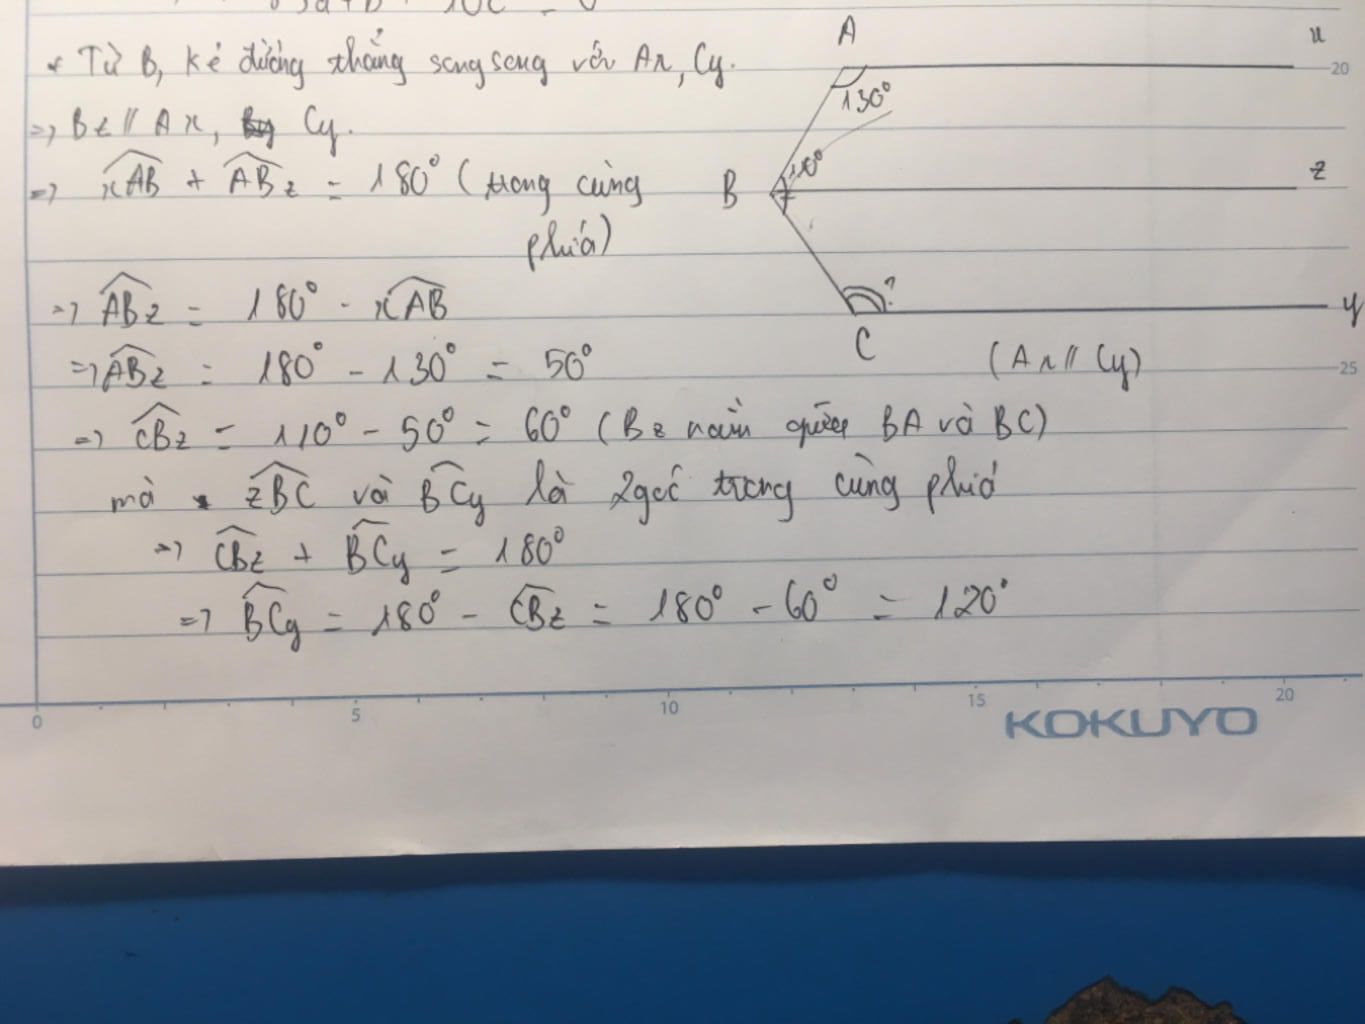 * Từ B, kẻ đường thẳng song song với Ax, Cy.
=> Bz // Ax, Cy.
=> xAB + ABz = 180° (trong cùng
phía)
=> ABz = 180° - xAB
=> ABz = 180° - 130° = 50°
=> CBz = 110° - 50° = 60° (Bz nằm giữa BA và BC)
mà zBC và BCy là 2 góc trong cùng phía
=> CBz + BCy = 180°
=> BCy = 180° - CBz = 180° - 60° = 120°
A
x
130°
B
110°
z
C
?
y
(Ax // Cy)
20
25
0 5 10 15 20
KOKUYO